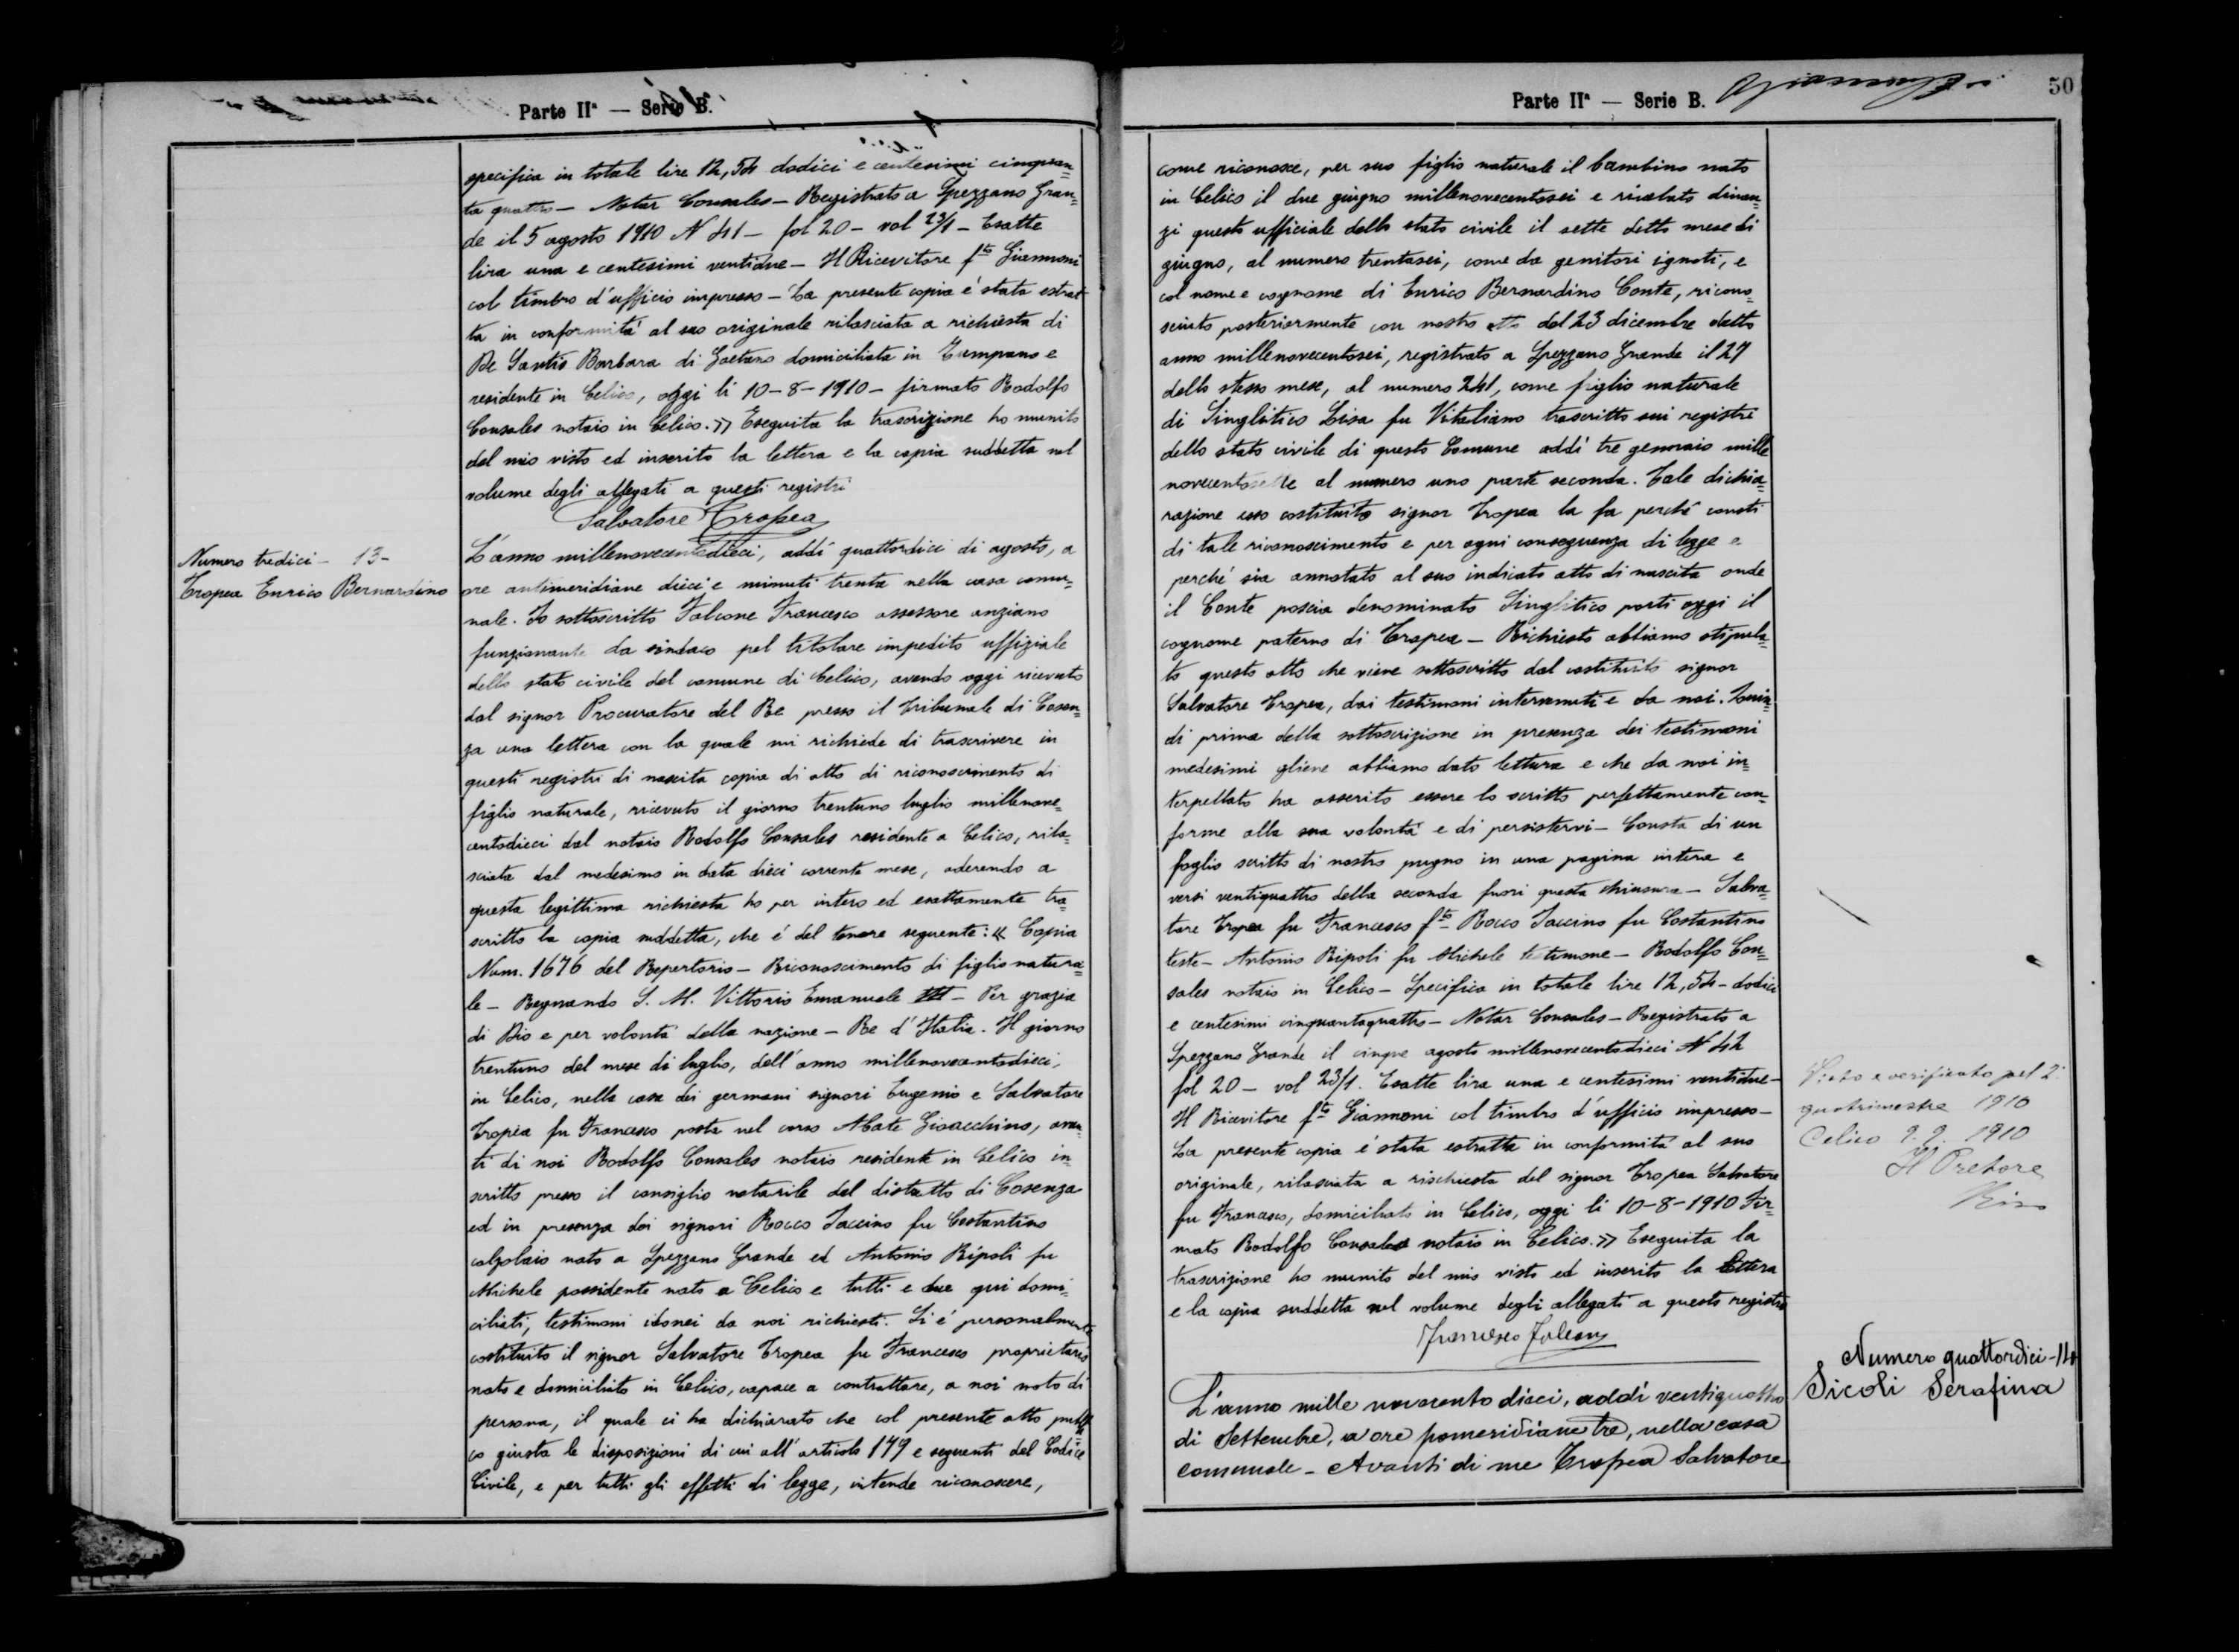 Parte IIª — Serie B.
specifica in totale lire 12,54 dodici e centesimi cinquan=
ta quattro — Notar Consales — Registrato a Spezzano Gran=
de il 5 agosto 1910 N 41 — fol 20 — vol 23/1 — Esatte
lira una e centesimi ventidue — Il Ricevitore fto Giannoni
col timbro d'ufficio impresso — La presente copia é stata estrat=
ta in conformitá al suo originale rilasciata a richiesta di
De Santis Barbara di Gaetano domiciliata in Zumpano e
residente in Celico, oggi li 10-8-1910 — firmato Rodolfo
Consales notaio in Celico.» Eseguita la trascrizione ho munito
del mio visto ed inserito la lettera e la copia suddetta nel
volume degli allegati a questi registri
Salvatore Tropea
Numero tredici — 13 —
Tropea Enrico Bernardino
L'anno millenovecentodieci, addí quattordici di agosto, a
ore antimeridiane dieci e minuti trenta nella casa comu=
nale. Io sottoscritto Falcone Francesco assessore anziano
funzionante da sindaco pel titolare impedito uffiziale
dello stato civile del comune di Celico, avendo oggi ricevuto
dal signor Procuratore del Re presso il Tribunale di Cosen=
za una lettera con la quale mi richiede di trascrivere in
questi registri di nascita copia di atto di riconoscimento di
figlio naturale, ricevuto il giorno trentuno luglio millenove=
centodieci dal notaio Rodolfo Consales residente a Celico, rila=
sciata dal medesimo in data dieci corrente mese, aderendo a
questa legittima richiesta ho per intero ed esattamente tra=
scritto la copia suddetta, che é del tenore seguente: « Copia
Num. 1676 del Repertorio — Riconoscimento di figlio natura=
le — Regnando S. M. Vittorio Emanuele III — Per grazia
di Dio e per volontá della nazione — Re d'Italia. Il giorno
trentuno del mese di luglio, dell'anno millenovecentodieci,
in Celico, nella casa dei germani signori Eugenio e Salvatore
Tropea fu Francesco posta nel corso Abate Gioacchino, avan=
ti di noi Rodolfo Consales notaio residente in Celico in=
scritto presso il consiglio notarile del distretto di Cosenza
ed in presenza dei signori Rocco Iaccino fu Costantino
calzolaio nato a Spezzano Grande ed Antonio Ripoli fu
Michele possidente nato a Celico e tutti e due qui domi=
ciliati, testimoni idonei da noi richiesti. Si é personalmente
costituito il signor Salvatore Tropea fu Francesco proprietario
nato e domiciliato in Celico, capace a contrattare, a noi noto di
persona, il quale ci ha dichiarato che col presente atto pubbli=
co giusta le disposizioni di cui all'articolo 179 e seguenti del Codice
Civile, e per tutti gli effetti di legge, intende riconoscere,
Parte IIª — Serie B.
50
come riconosce, per suo figlio naturale il bambino nato
in Celico il due giugno millenovecentosei e rivelato dinan=
zi questo ufficiale dello stato civile il sette detto mese di
giugno, al numero trentasei, come da genitori ignoti, e
col nome e cognome di Enrico Bernardino Conte, ricono=
sciuto posteriormente con nostro atto del 23 dicembre detto
anno millenovecentosei, registrato a Spezzano Grande il 27
dello stesso mese, al numero 241, come figlio naturale
di Singlitico Lisa fu Vitaliano trascritto sui registri
dello stato civile di questo Comune addí tre gennaio mille
novecentosette al numero uno parte seconda. Tale dichia=
razione esso costituito signor Tropea la fa perché consti
di tale riconoscimento e per ogni conseguenza di legge e
perché sia annotato al suo indicato atto di nascita onde
il Conte poscia denominato Singlitico porti oggi il
cognome paterno di Tropea — Richiesto abbiamo stipula=
to questo atto che viene sottoscritto dal costituito signor
Salvatore Tropea, dai testimoni intervenuti e da noi. Quin=
di prima della sottoscrizione in presenza dei testimoni
medesimi gliene abbiamo dato lettura e che da noi in=
terpellato ha asserito essere lo scritto perfettamente con=
forme alla sua volontá e di persistervi — Consta di un
foglio scritto di nostro pugno in una pagina intera e
versi ventiquattro della seconda fuori questa chiusura — Salva=
tore Tropea fu Francesco fto — Rocco Iaccino fu Costantino
teste — Antonio Ripoli fu Michele testimone — Rodolfo Con=
sales notaio in Celico — Specifica in totale lire 12,54 — dodici
e centesimi cinquantaquattro — Notar Consales — Registrato a
Spezzano Grande il cinque agosto millenovecentodieci N 42
fol 20 — vol 23/1. Esatte lira una e centesimi ventidue —
Il Ricevitore fto Giannoni col timbro d'ufficio impresso —
La presente copia é stata estratta in conformitá al suo
originale, rilasciata a rischiesta del signor Tropea Salvatore
fu Francesco, domiciliato in Celico, oggi li 10-8-1910 Fir=
mato Rodolfo Consales notaio in Celico.» Eseguita la
trascrizione ho munito del mio visto ed inserito la lettera
e la copia suddetta nel volume degli allegati a questo registro
Francesco Falcone
Visto e verificato pel 2°
quatrimestre 1910
Celico 9. 9. 1910
Il Pretore
Numero quattordici — 14
Sicoli Serafina
L'anno mille novecento dieci, addí ventiquattro
di Settembre, a ore pomeridiane tre, nella casa
comunale — Avanti di me Tropea Salvatore